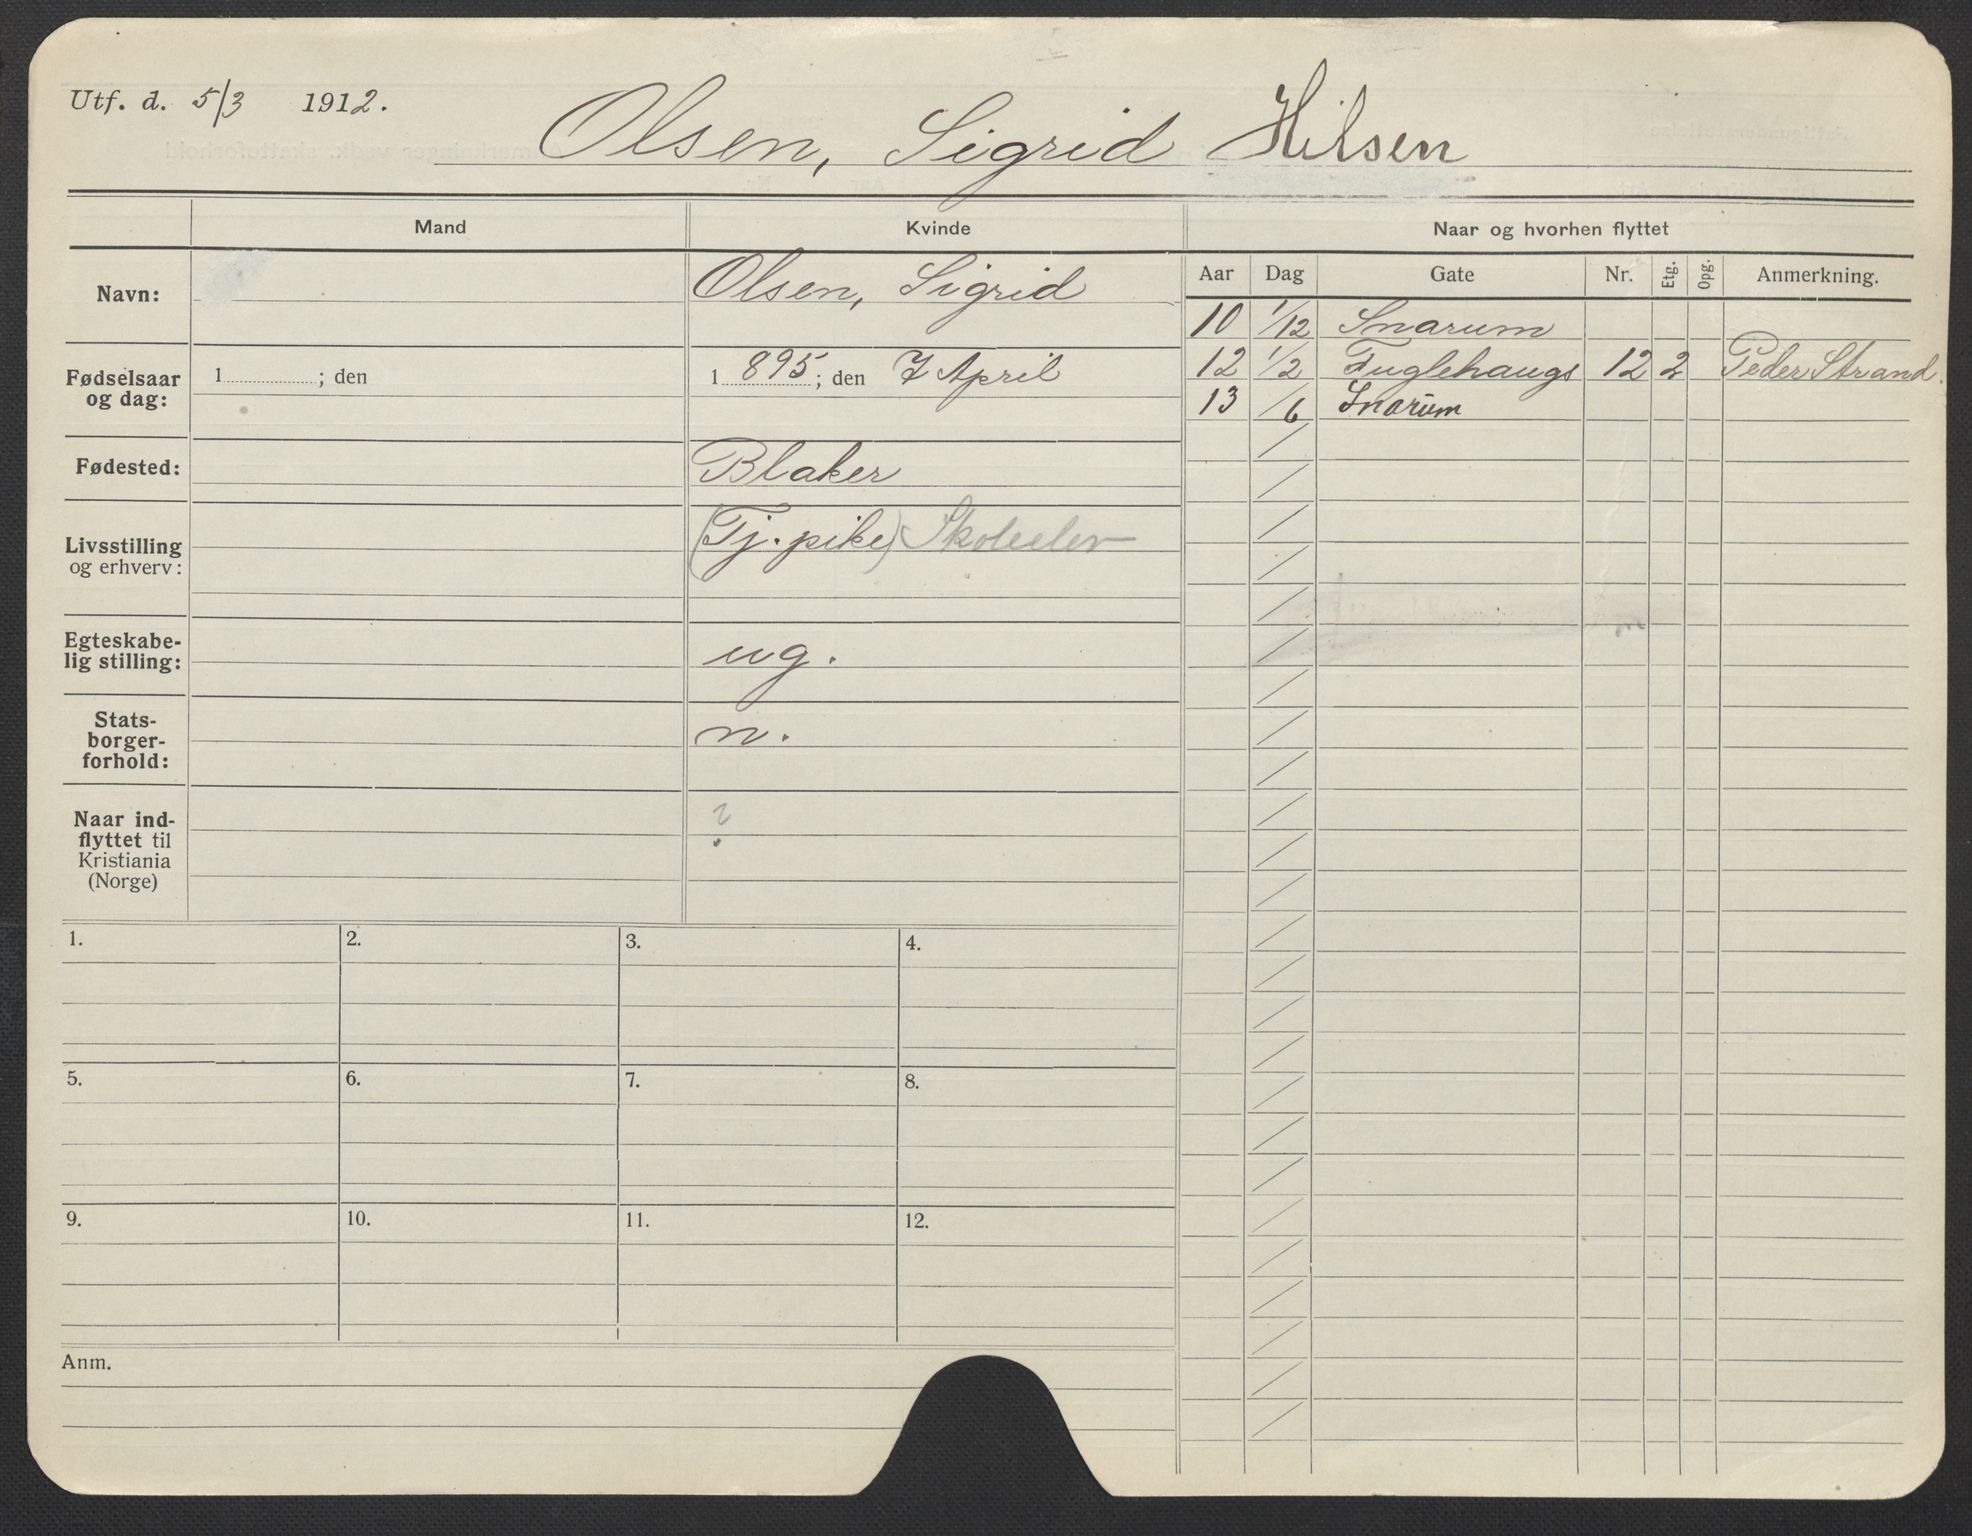 Utf. d. 5/3 1912.
Olsen, Sigrid Hilsen
Mand
Kvinde
Naar og hvorhen flyttet
Navn:
Olsen, Sigrid
Aar Dag Gate Nr. Etg. Opg. Anmerkning.
10 1/12 Snarum
12 1/2 Fuglehaugs 12 2 Peder Strand.
13 /6 Snarum
Fødselsaar
og dag:
1 ; den
1 895 ; den 7 April
Fødested:
Blaker
Livsstilling
og erhverv:
(Tj. pike) Skoleelev
Egteskabe-
lig stilling:
ug.
Stats-
borger-
forhold:
n.
Naar ind-
flyttet til
Kristiania
(Norge)
?
1. 2. 3. 4.
5. 6. 7. 8.
9. 10. 11. 12.
Anm.